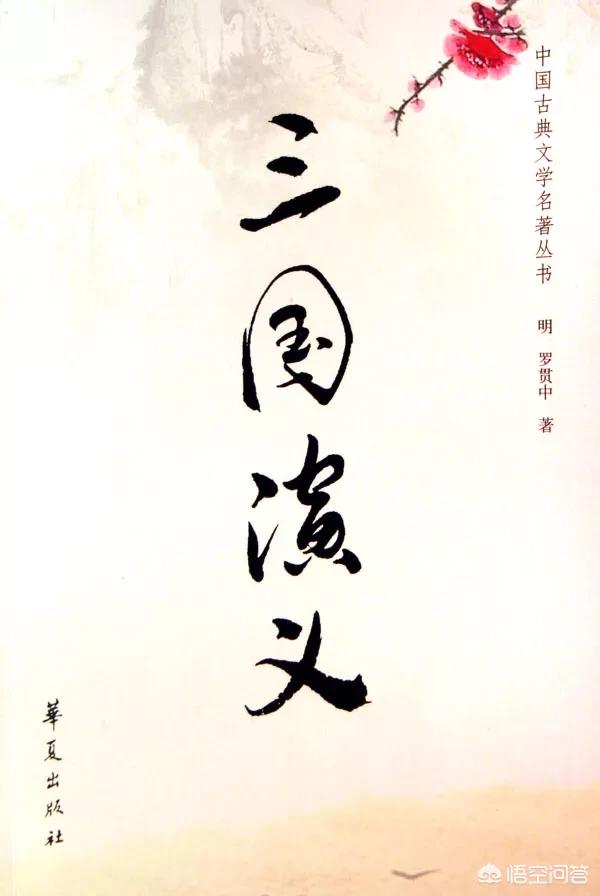 中国古典文学名著丛书
明 罗贯中 著
三国演义
華夏出版社
悟空问答